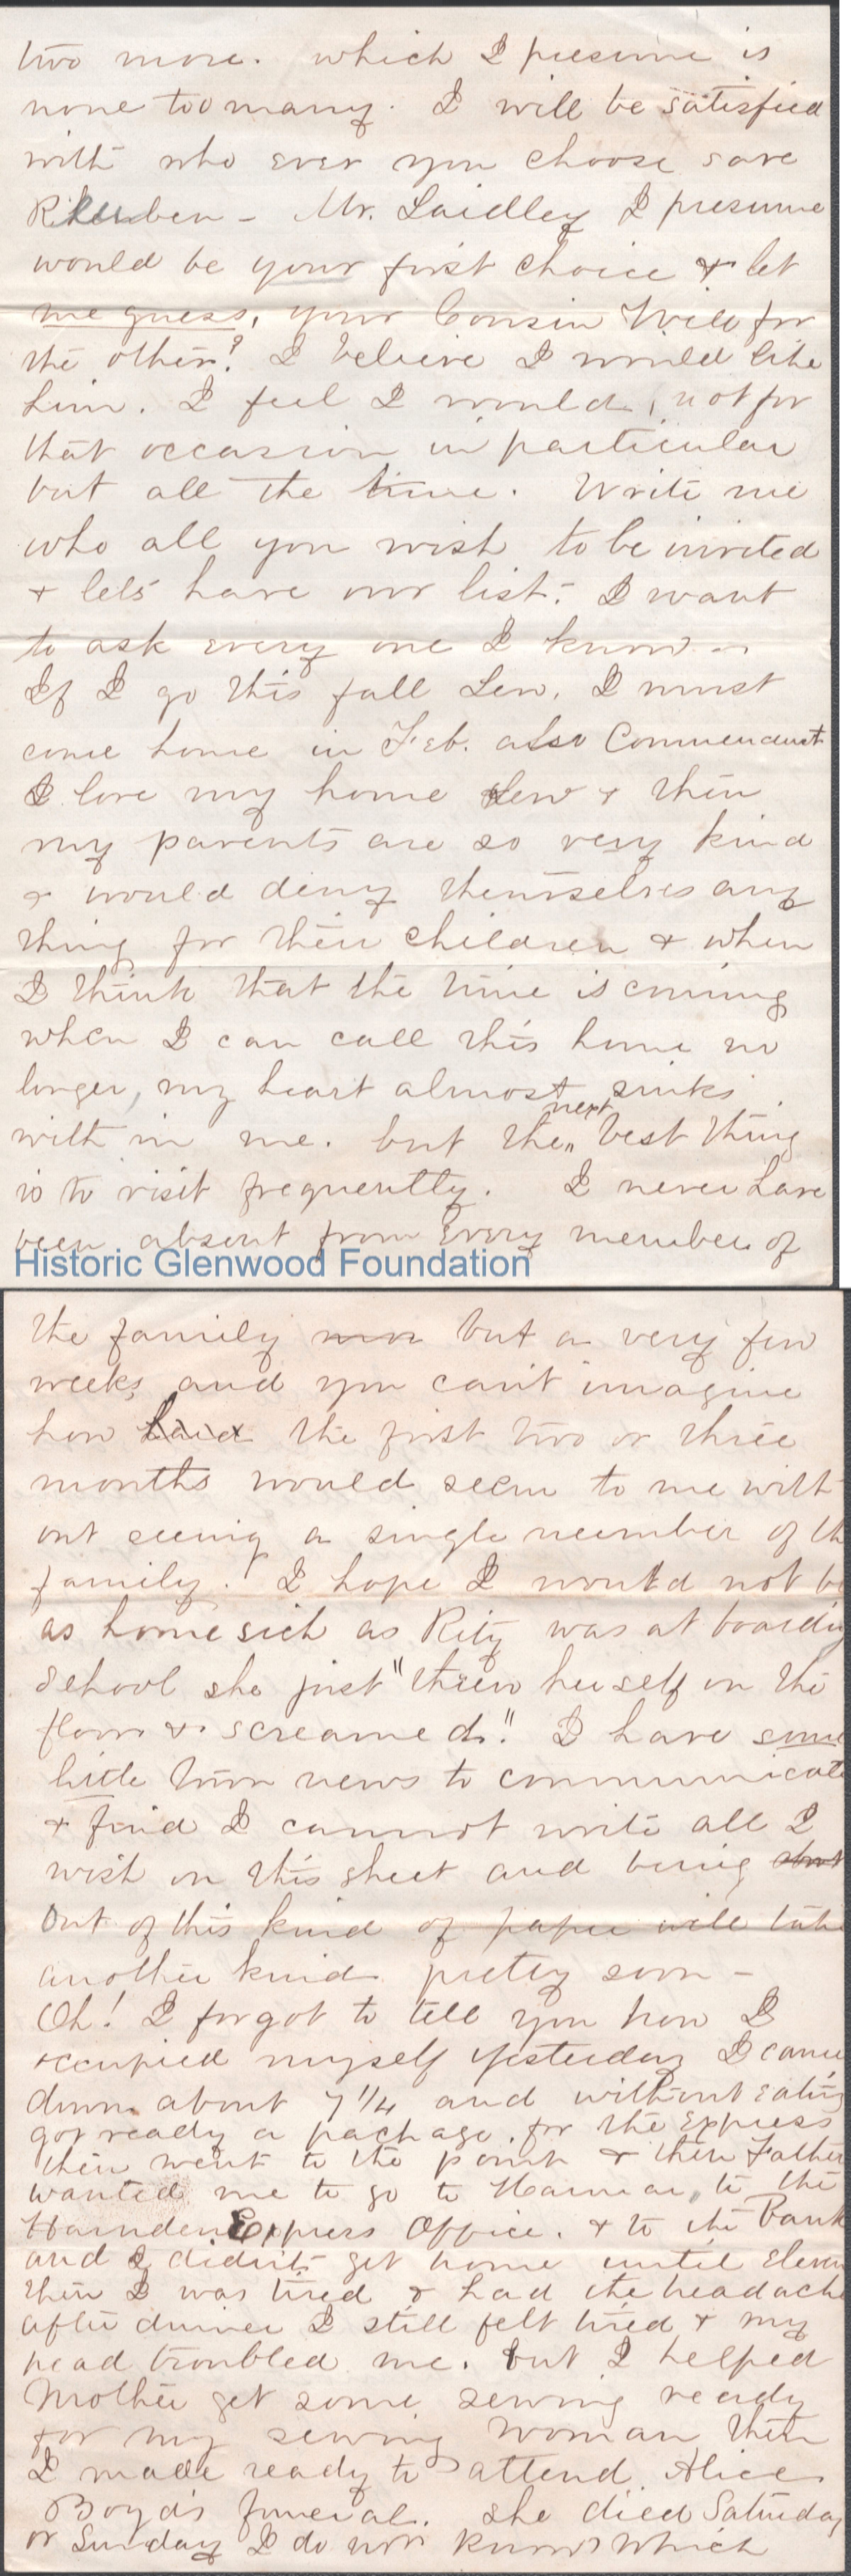 two more. which I presume is
none too many. I will be satisfied
with who ever you choose save
Rheuben - Mr. Laidley I presume
would be your first choice & let
me guess, your Cousin Will for
the other? I believe I would like
him. I feel I would, not for
that occasion in particular
but all the time. Write me
who all you wish to be invited
& lets have our list. I want
to ask every one I know -
If I go this fall Lew, I must
come home in Feb. also Commencemt
I love my home Lew & then
my parents are so very kind
& would deny themselves any
thing for their children & when
I think that the time is coming
when I can call this home no
longer, my heart almost sinks
with in me. but the next best thing
is to visit frequently. I never have
been absent from every member of
Historic Glenwood Foundation
the family but a very few
weeks and you can't imagine
how hard the first two or three
months would seem to me with
out seeing a single member of th
family. I hope I would not be
as home sick as Rity was at boardig
School she just "threw herself on the
floor & screamed." I have some
little town news to communicate
& find I cannot write all I
wish on this sheet and being
out of this kind of paper will take
another kind pretty soon -
Oh! I forgot to tell you how I
occupied myself yesterday I came
down about 7 1/4 and without eating
got ready a package for the Express
then went to the point & then Father
wanted me to go to Harmar, to the
Harnden Express Office. & to the Bank
and I didn't get home until eleven
then I was tired & had the headache
after dinner I still felt tired & my
head troubled me. but I helped
Mother get some sewing ready
for my sewing woman then
I made ready to attend Alice
Boyd's funeral. she died Saturday
or Sunday I do not know which